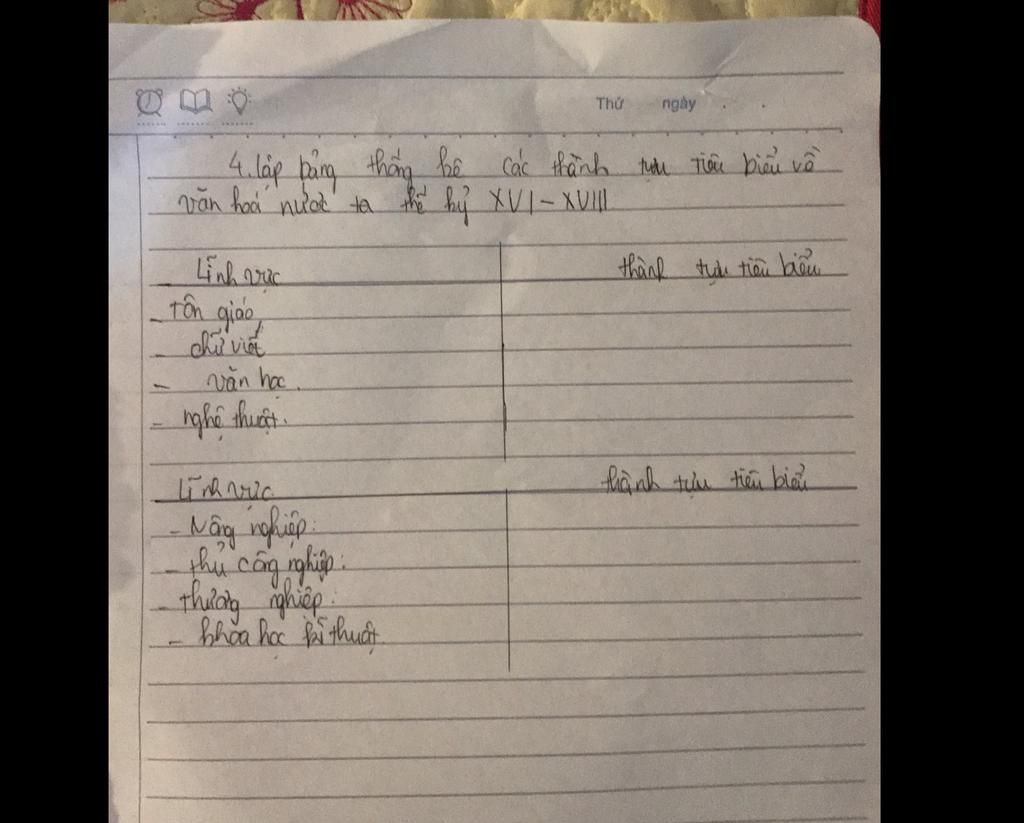 Thứ ngày . .
4. lập bảng thống kê các thành tựu tiêu biểu về
văn hoá nước ta thế kỷ XVI - XVIII
Lĩnh vực thành tựu tiêu biểu
- Tôn giáo
- chữ viết
- văn học.
- nghệ thuật.
Lĩnh vực thành tựu tiêu biểu
- Nông nghiệp:
- thủ công nghiệp:
- thương nghiệp:
- khoa học kĩ thuật